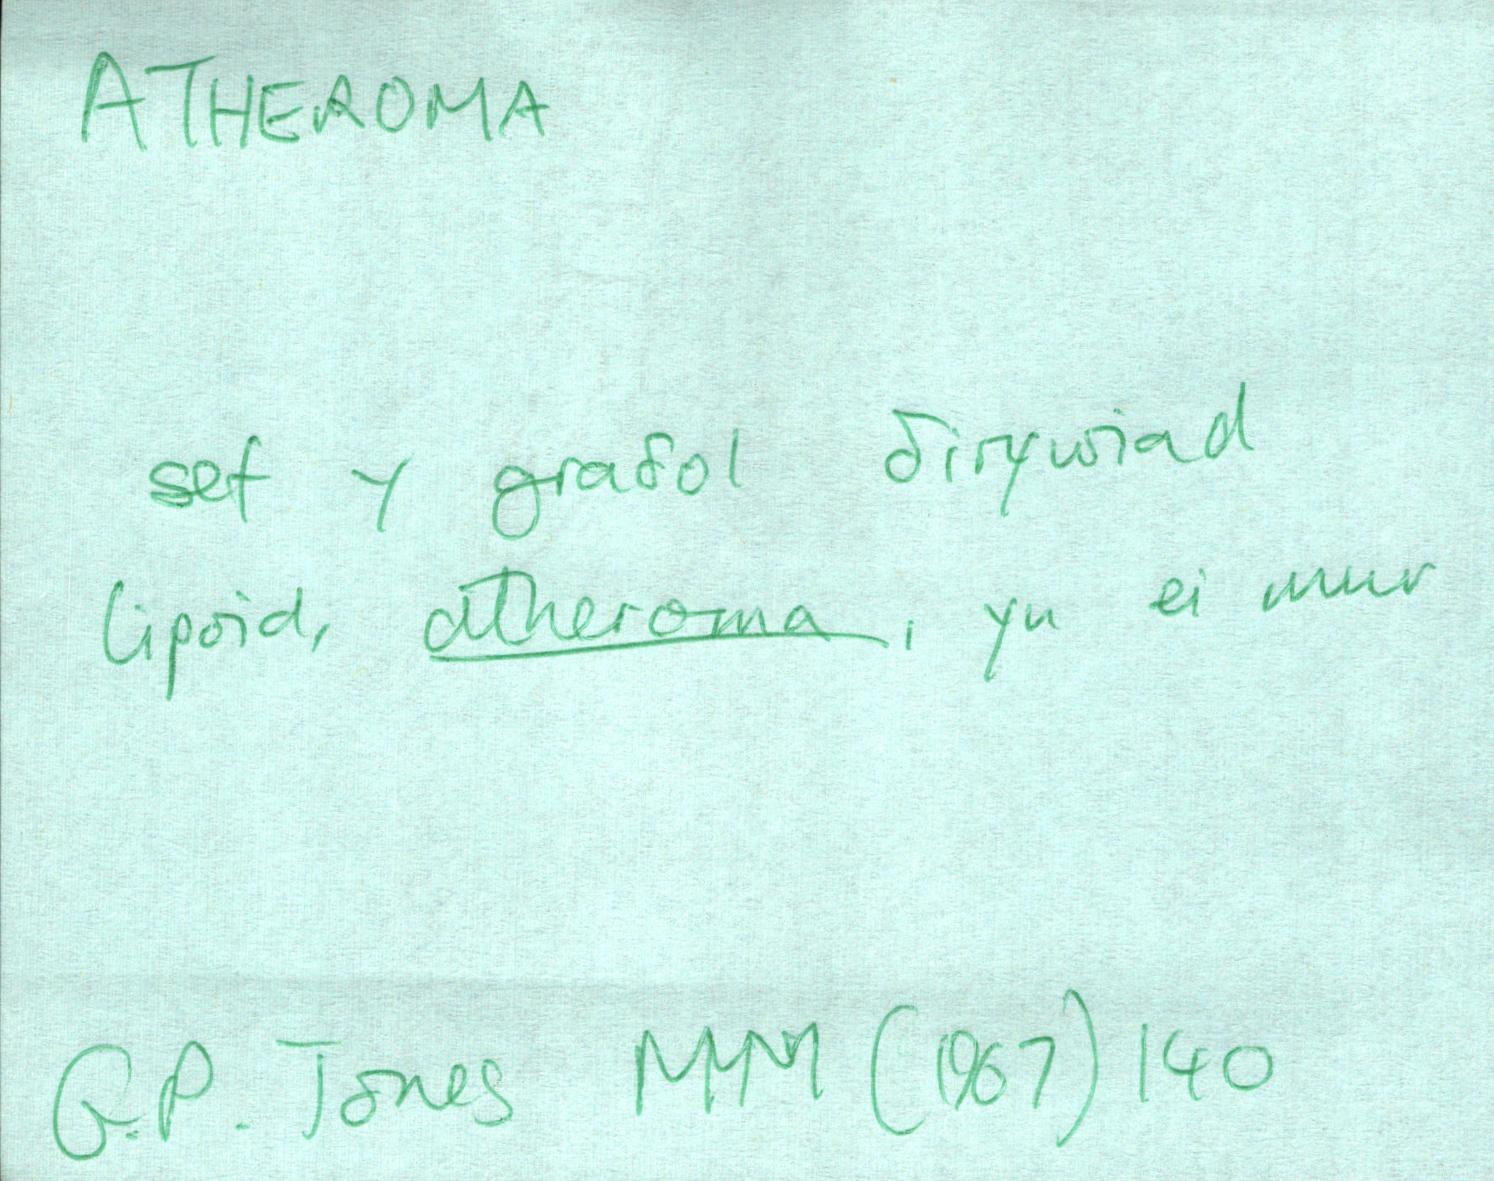 ATHEROMA
sef y graδol δirywiad
lipoid, atheroma, yn ei mur
G.P. Jones MM (1967) 140